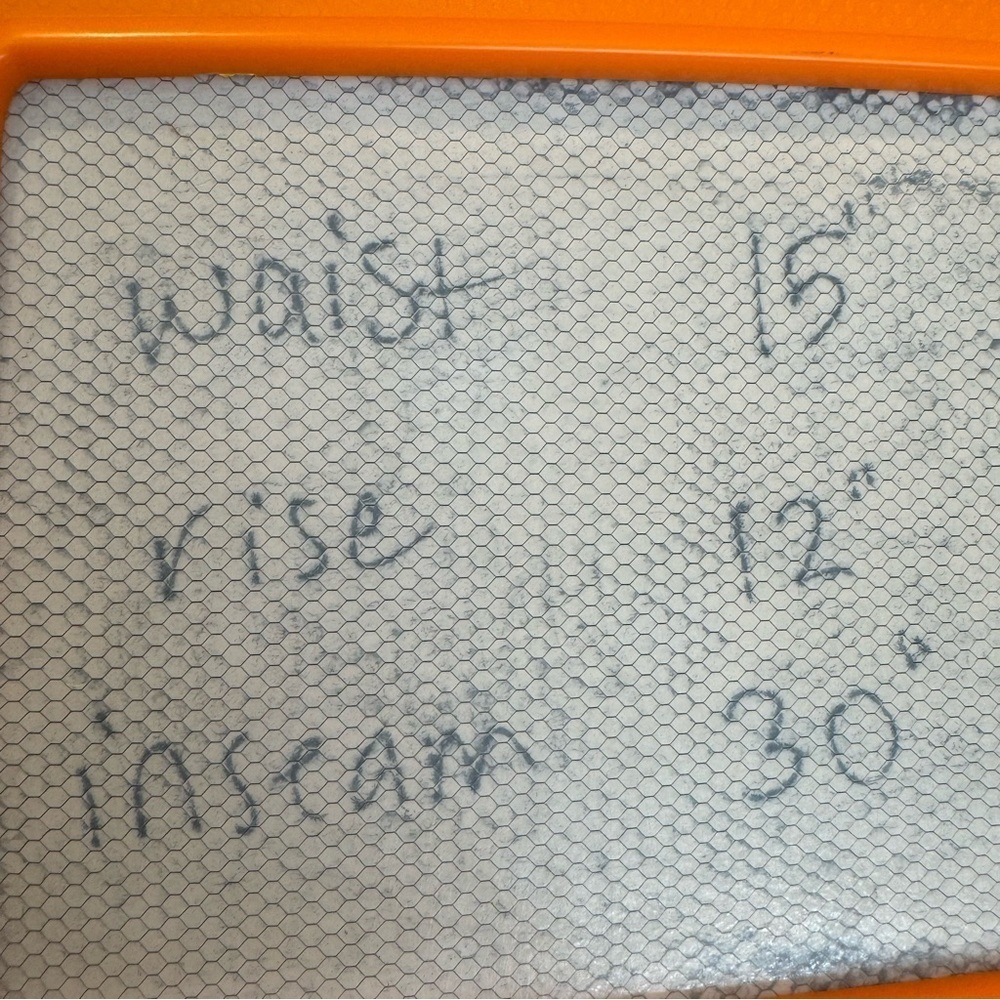 waist 15"
rise 12"
inseam 30"